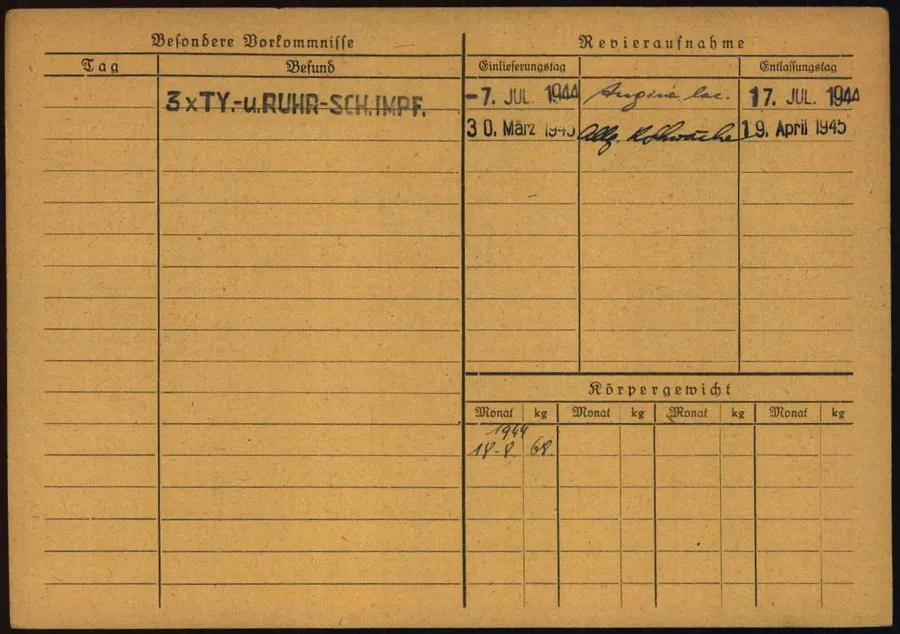 Besondere Vorkommnisse
Tag Befund
3xTY.-u.RUHR-SCH.IMPF.
Revieraufnahme
Einlieferungstag Entlassungstag
-7. JUL. 1944 Angina lac. 17. JUL. 1944
30. März 1945 Allg. 19. April 1945
Körpergewicht
Monat kg Monat kg Monat kg Monat kg
1944
18-8. 68.